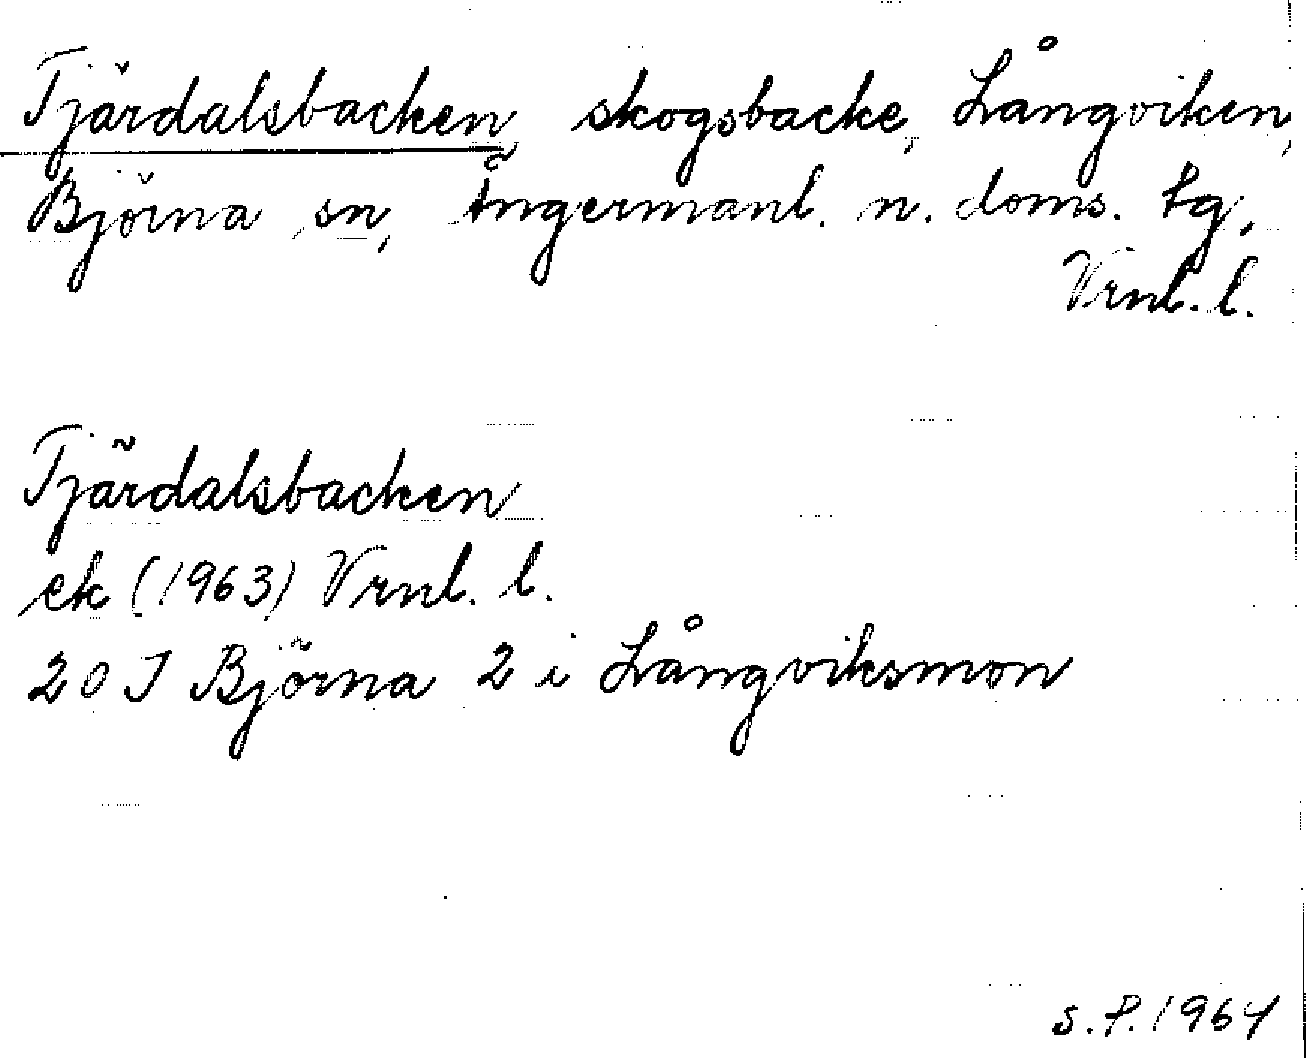 Tjärdalsbacken, skogsbacke, Långviken,
Björna sn, Ångermanl. n. doms. tg,
Vrnl. l.
Tjärdalsbacken
ek (1963) Vrnl. l.
20 J Björna 2 i Långviksmon
S.P. 1964